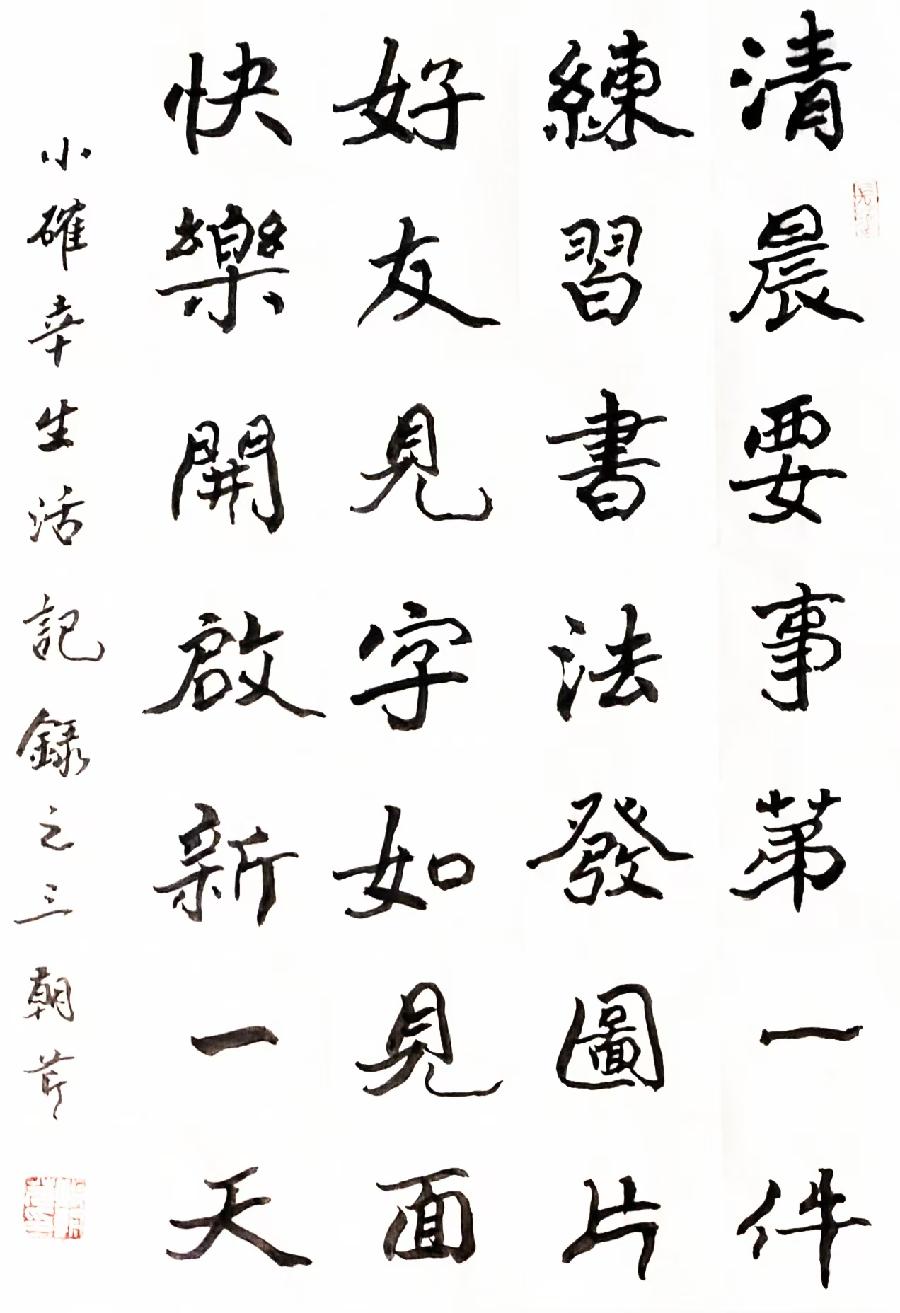 清晨要事第一件
練習書法發圖片
好友見字如見面
快樂開啟新一天
小確幸生活記錄之三朝